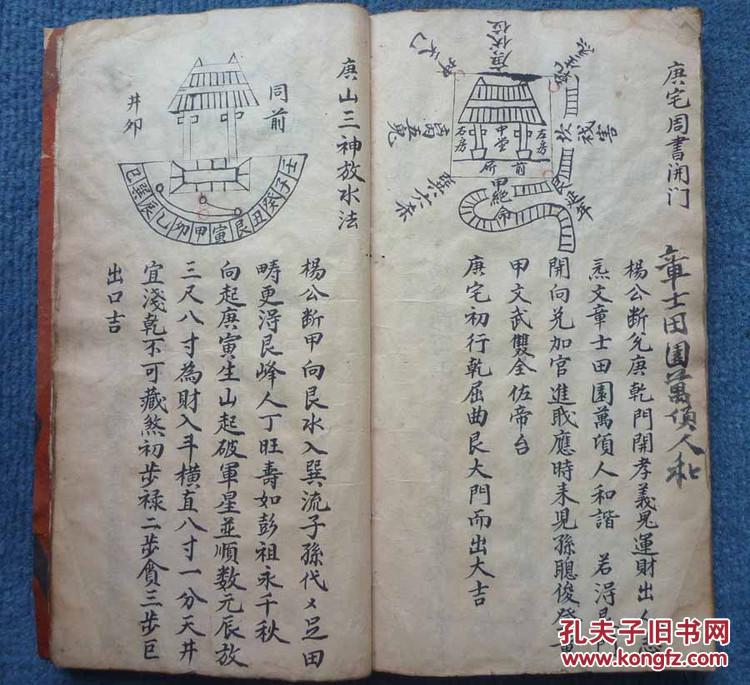 庚宅周書開门
章士田園萬傾人和
楊公断兌庚乾門開孝義兒運財出
文章士田園萬頃人和諧 若淂艮
開向兌加官進戝應時未見孫聰俊
甲文武雙全佐帝台
庚宅初行乾屈曲艮大門而出大吉
庚伏位
左房
中堂
右房
前
所
甲絶命
巽六杀
延年
庚山三神放水法
同前
井卯
壬子癸丑艮寅甲卯乙辰巽巳
楊公断甲向艮水入巽流子孫代〻足田
疇更淂艮峰人丁旺壽如彭祖永千秋
向起庚寅生山起破軍星並順数元辰放
三尺八寸為財入斗橫直八寸一分天井
宜淺乾不可藏煞初步禄二步貪三步巨
出口吉
孔夫子旧书网
www.kongfz.com